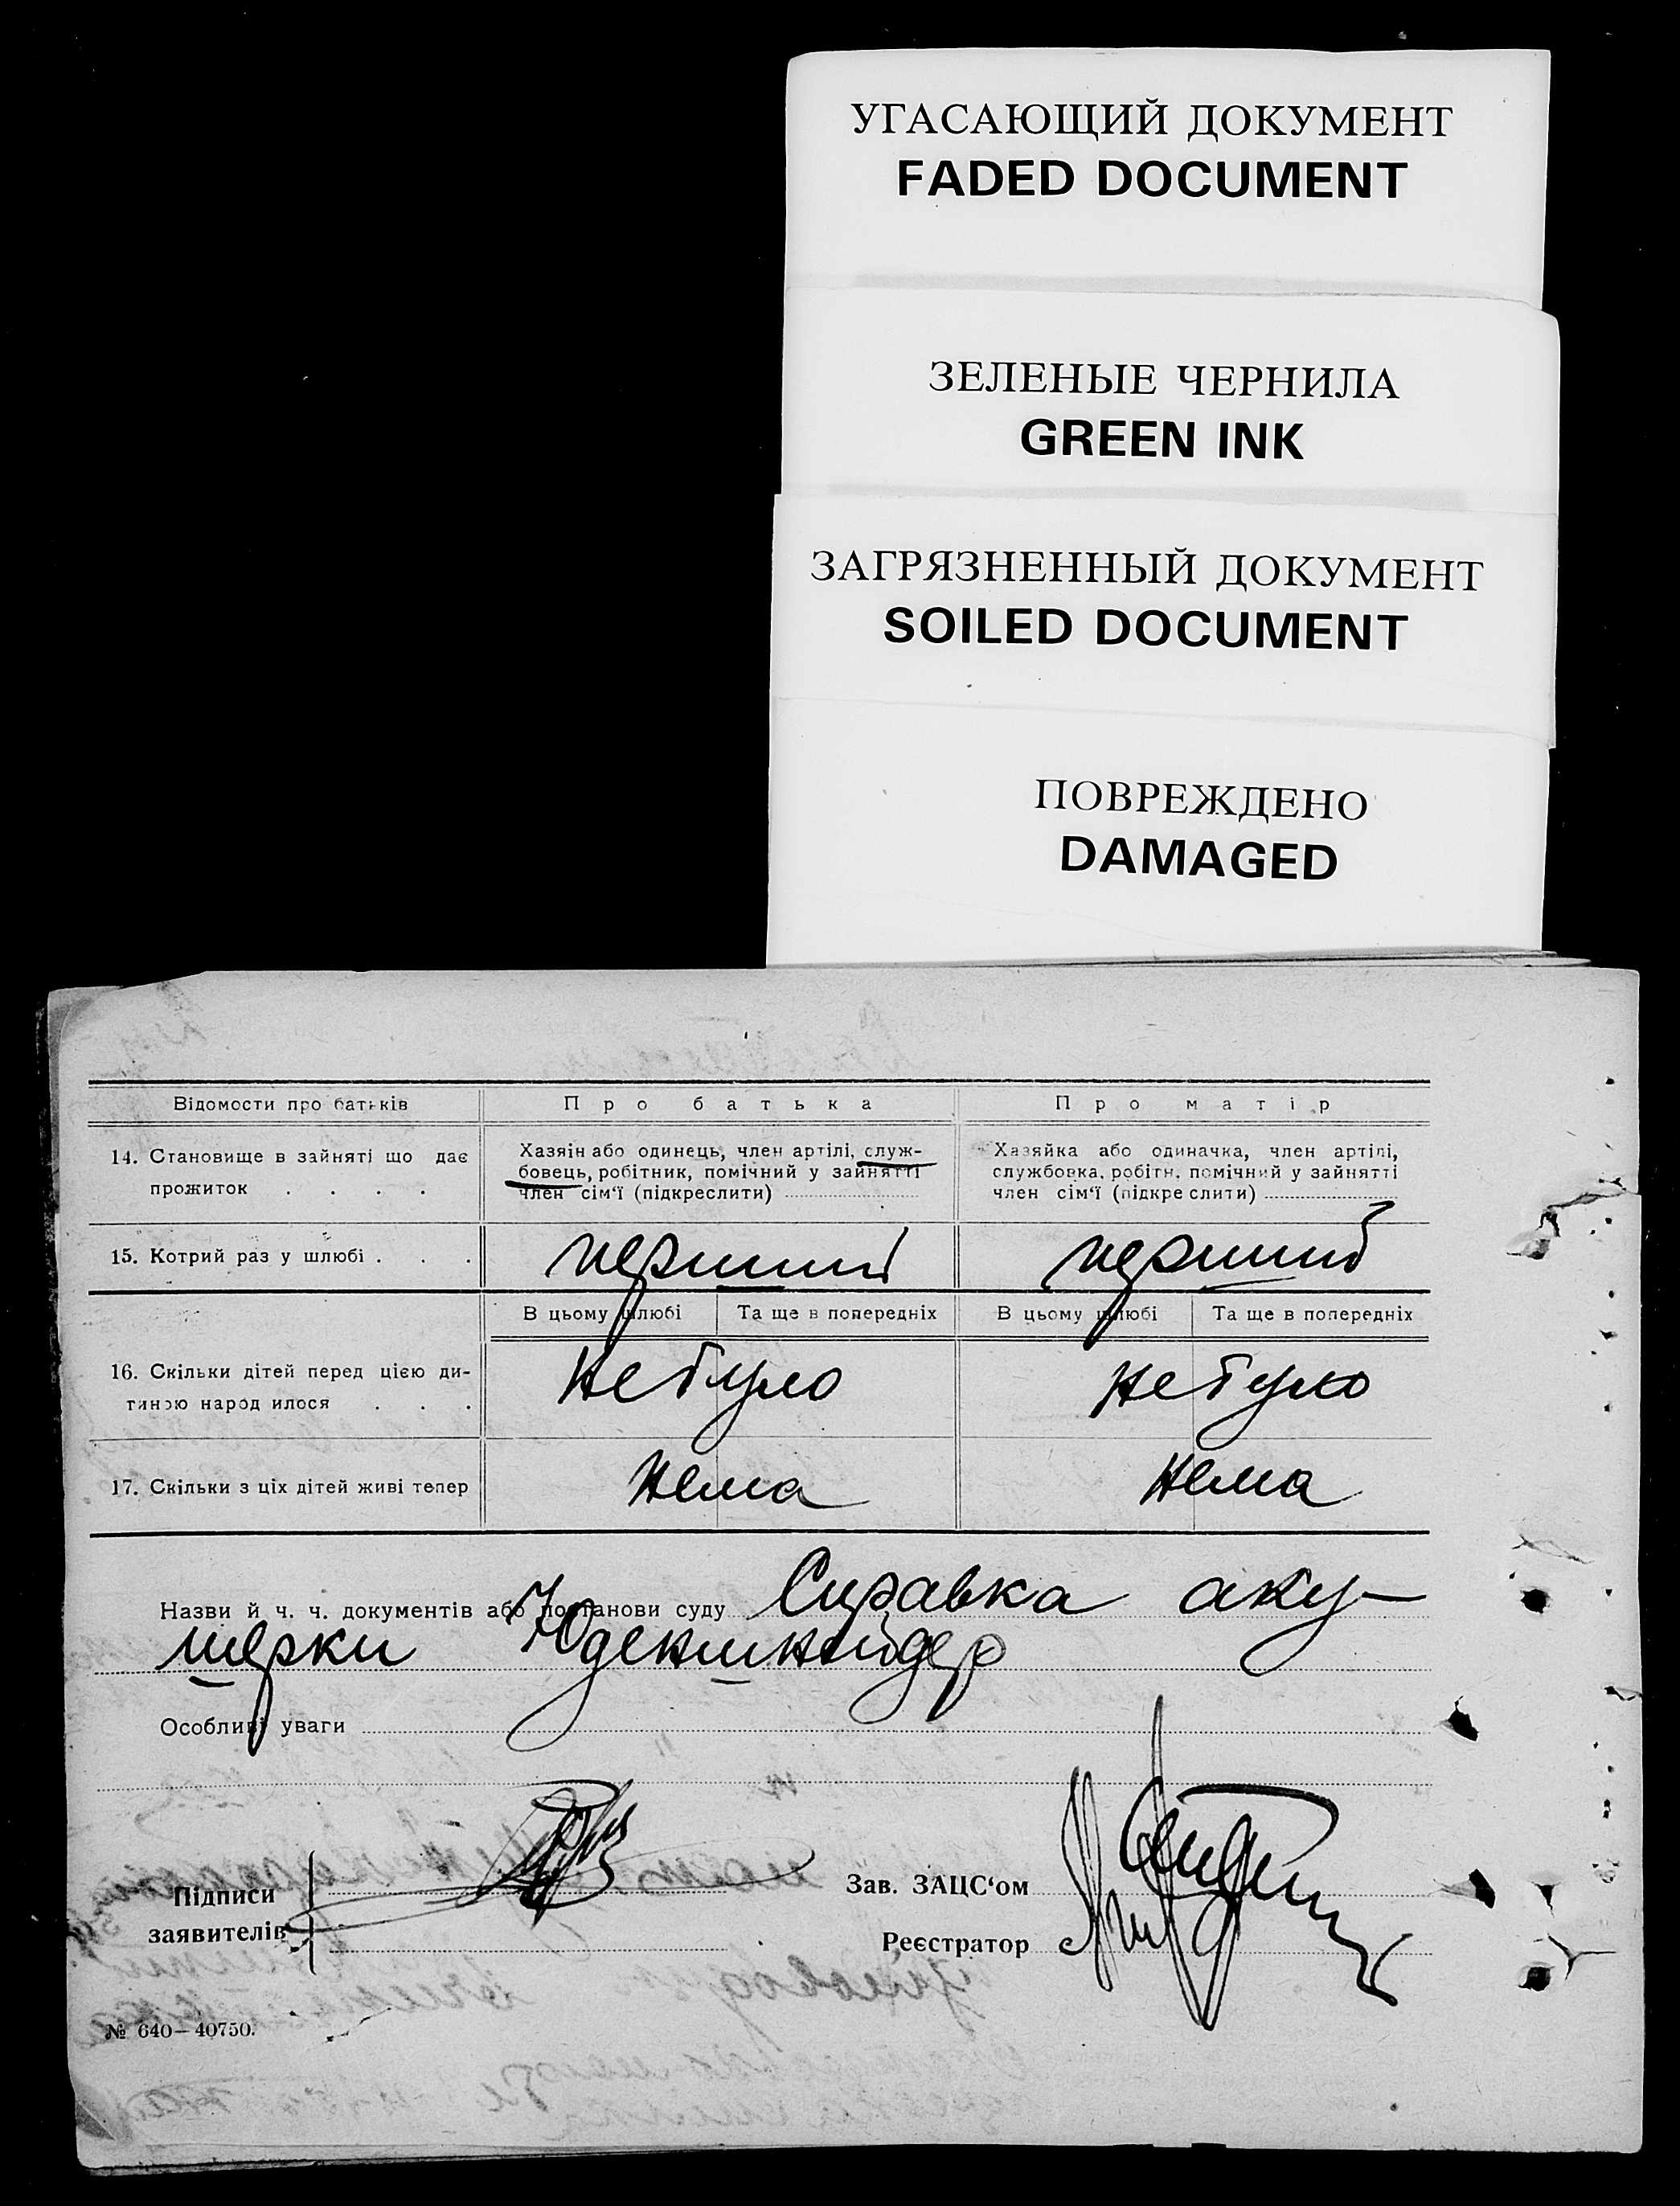 УГАСАЮЩИЙ ДОКУМЕНТ
FADED DOCUMENT
ЗЕЛЕНЫЕ ЧЕРНИЛА
GREEN INK
ЗАГРЯЗНЕННЫЙ ДОКУМЕНТ
SOILED DOCUMENT
ПОВРЕЖДЕНО
DAMAGED
Відомости про батьків
Про батька
Про матір
14. Становище в зайняті що дає
прожиток . . . .
Хазяїн або одинець, член артілі, служ-
бовець, робітник, помічний у зайнятті
член сім'ї (підкреслити)
Хазяйка або одиначка, член артілі,
службовка, робітн. помічний у зайнятті
член сім'ї (підкреслити)
15. Котрий раз у шлюбі . . .
перший
перший
В цьому шлюбі
Та ще в попередніх
В цьому шлюбі
Та ще в попередніх
16. Скільки дітей перед цією ди-
тиною народилося . . .
не було
не було
17. Скільки з ціх дітей живі тепер
Нема
Нема
Назви й ч. ч. документів або постанови суду Справка аку-
шерки Юденшнайдер
Особливі уваги
Підписи
заявителів
Зав. ЗАЦС'ом
Реєстратор
№ 640—40750.